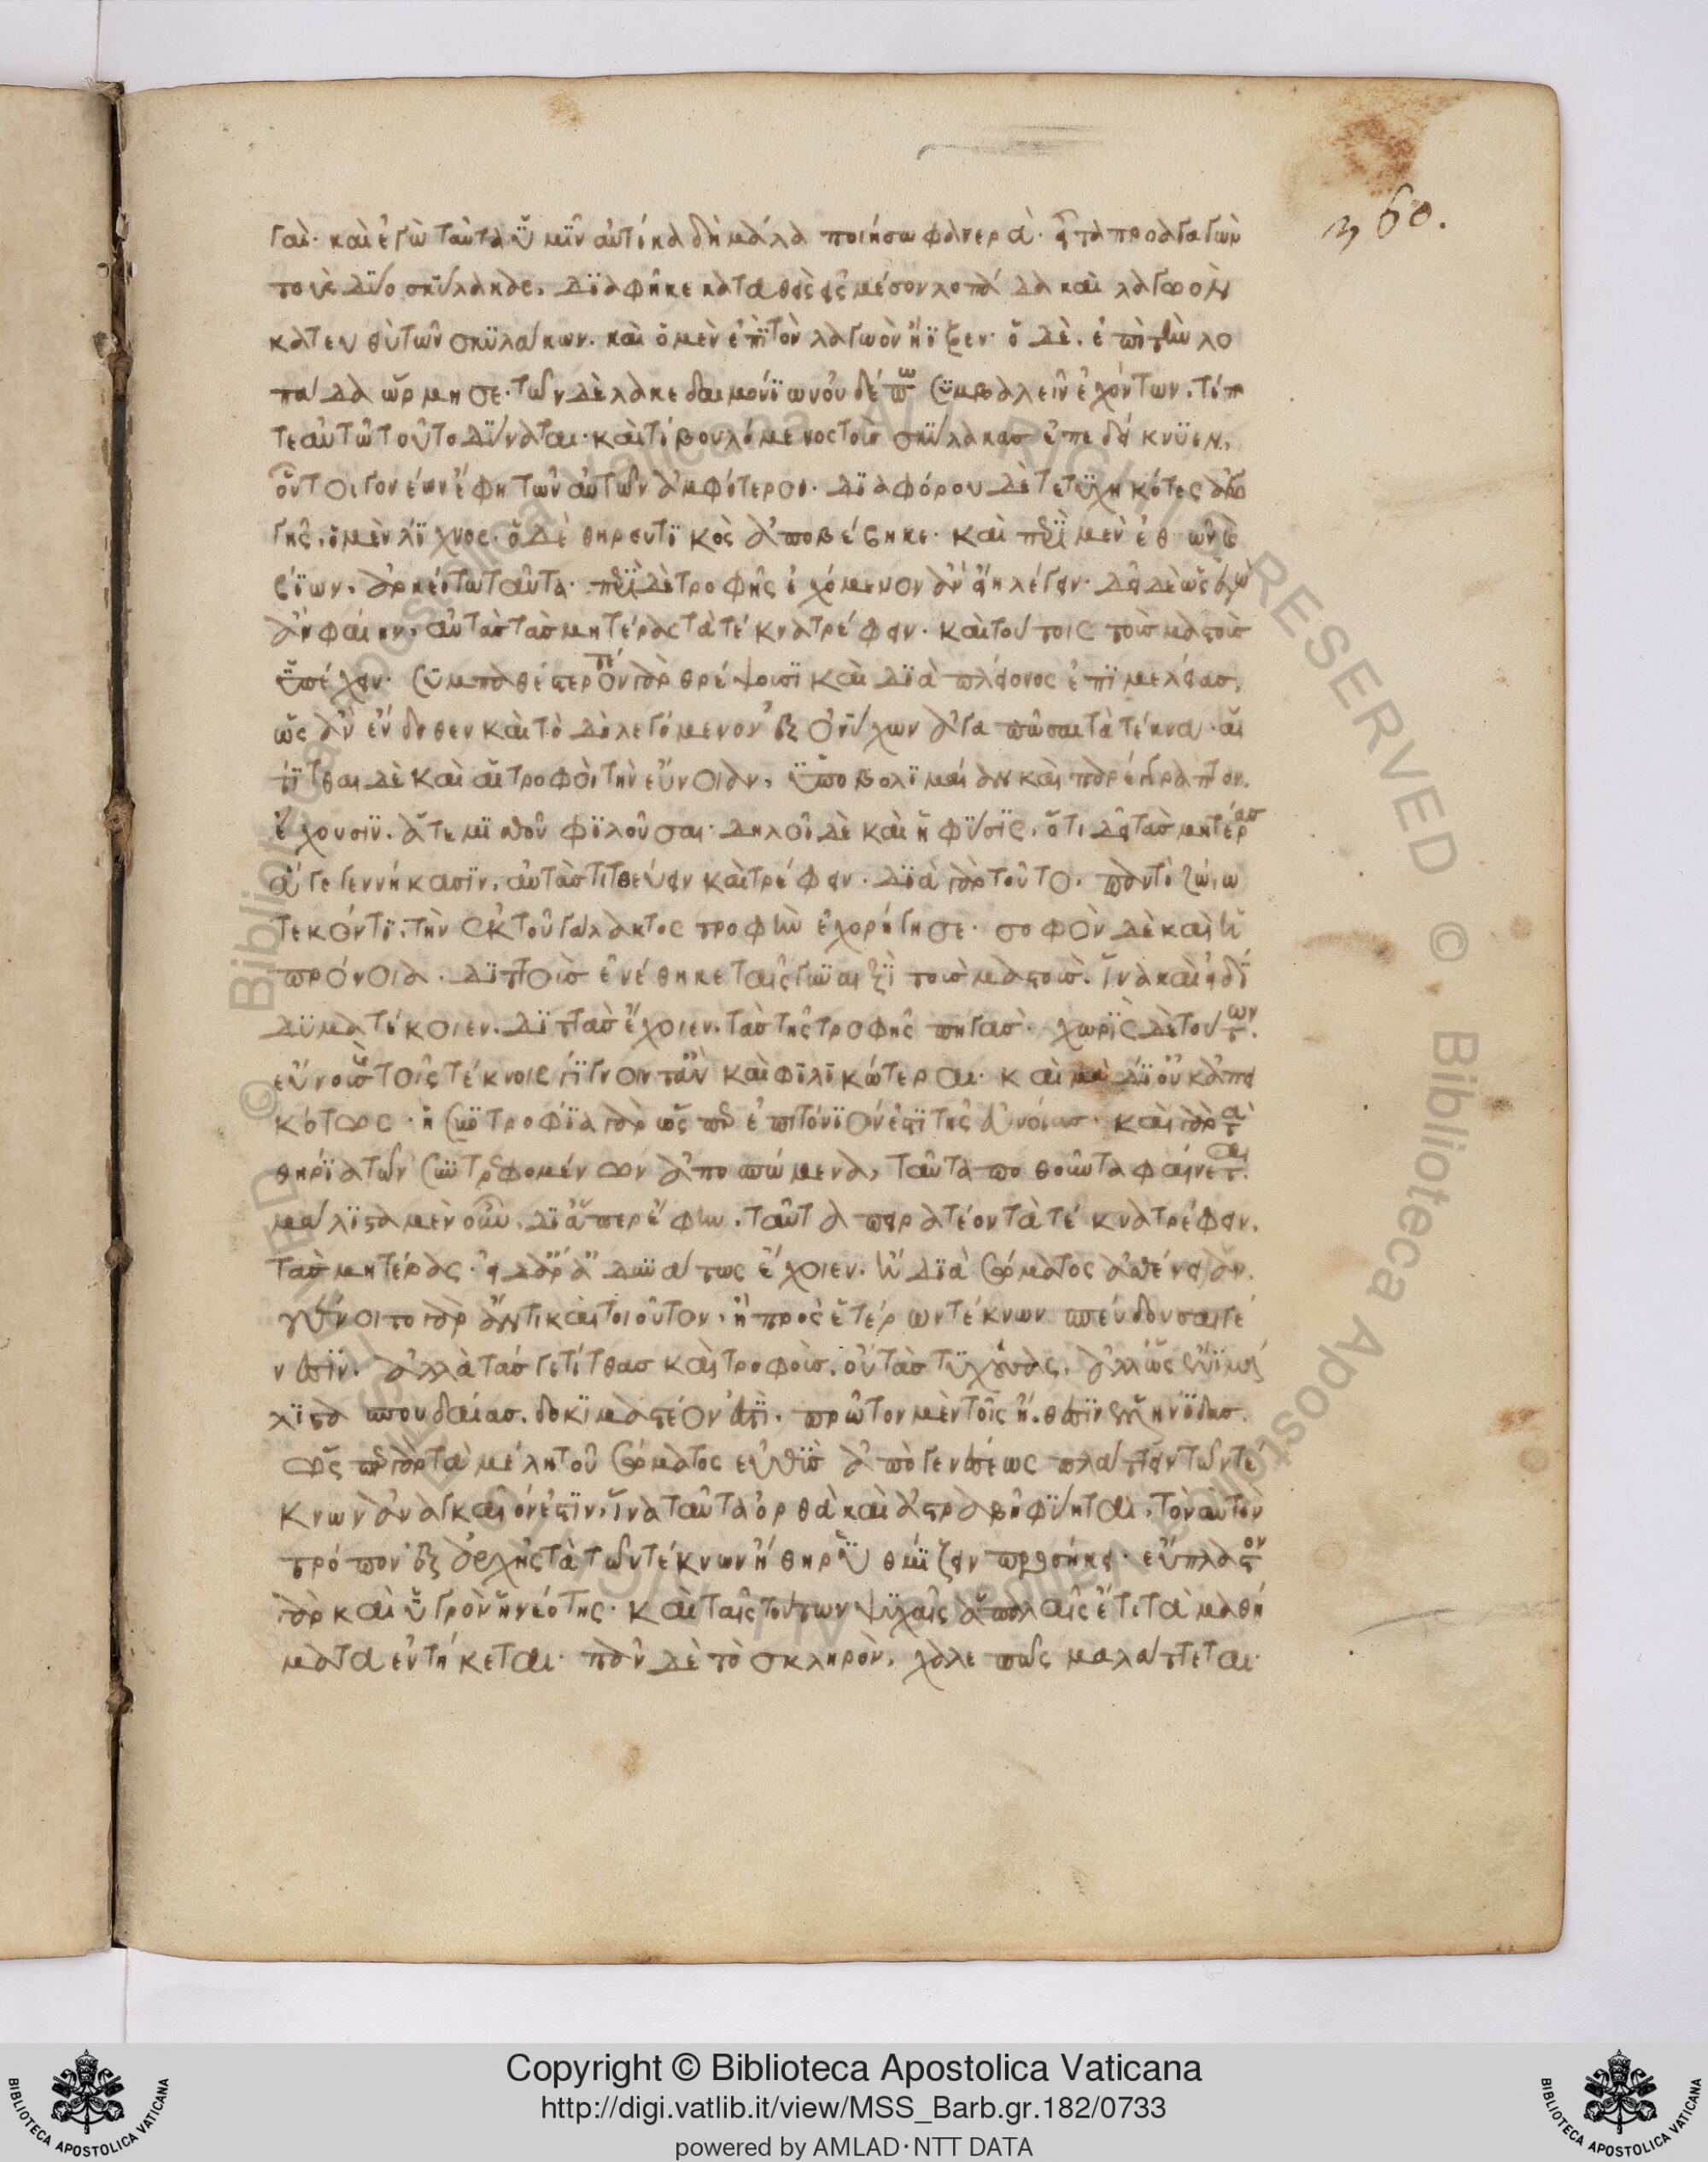 360.
γαί· καὶ ἐγὼ ταῦτα ὑμῖν αὐτίκα δὴ μάλα ποιήσω φανερά· εἶτα προαγαγὼν
τοὺς δύο σκύλακας, διαφῆκε καταθεὶς εἰς μέσον λοπάδα καὶ λαγωὸν
κατευθὺ τῶν σκυλάκων. καὶ ὁ μὲν ἐπὶ τὸν λαγωὸν ᾖξεν· ὁ δὲ, ἐπὶ τὴν λο
πάδα ὥρμησε· τῶν δὲ λακεδαιμονίων οὐδέπω συμβαλεῖν ἐχόντων, τί π
τε αὐτῶ τοῦτο δύναται· καὶ τί βουλόμενος τοὺς σκύλακας ἐπεδείκνυεν,
οὗτοι γονέων ἔφη τῶν αὐτῶν ἀμφότεροι· διαφόρου δὲ τετυχηκότες ἀγω
γῆς, ὁ μὲν λίχνος· ὁ δὲ θηρευτικὸς ἀποβέβηκε· καὶ περὶ μὲν ἐθῶν καὶ
βίων, ἀρκείτω ταῦτα· περὶ δὲ τροφῆς ἐχόμενον ἂν εἴη λέγειν· δεῖ δὲ ὡς ἐγὼ
ἂν φαίην, αὐτὰς τὰς μητέρας τὰ τέκνα τρέφειν· καὶ τούτοις τοὺς μαστοὺς
ὑπέχειν· συμπαθέστερόν τε γὰρ θρέψουσι καὶ διὰ πλείονος ἐπιμελείας,
ὡς ἂν ἔνδοθεν καὶ τὸ δὴ λεγόμενον ἐξ ὀνύχων ἀγαπῶσαι τὰ τέκνα· αἱ
τίτθαι δὲ καὶ αἱ τροφοὶ τὴν εὔνοιαν, ὑποβολιμαίαν καὶ παρέγγραπτον
ἔχουσιν, ἅτε μισθοῦ φιλοῦσαι· δηλοῖ δὲ καὶ ἡ φύσις, ὅτι δεῖ τὰς μητέρας
ἃ γεγεννήκασιν, αὐτὰς τιτθεύειν καὶ τρέφειν· διὰ γὰρ τοῦτο, παντὶ ζώω
τεκόντι, τὴν ἐκ τοῦ γάλακτος τροφὴν ἐχορήγησε· σοφὸν δὲ καὶ ἡ
πρόνοια· διττοὺς ἐνέθηκε ταῖς γυναιξὶ τοὺς μαστοὺς, ἵνα κἂν εἰ δί
δυμα τέκοιεν, διττὰς ἔχοιεν τὰς τῆς τροφῆς πηγάς· χωρὶς δὲ τούτων
εὐνούστεραι τοῖς τέκνοις γίγνοιντ' ἂν καὶ φιλικώτεραι· καὶ μὰ δί' οὐκ ἀπει
κότως· ἡ συντροφία γὰρ ὥσπερ ἐπιτόνιόν ἐστι τῆς εὐνοίας· καὶ γὰρ τὰ
θηρία τῶν συντρεφομένων ἀποσπώμενα, ταῦτα ποθοῦντα φαίνεται
μάλιστα μὲν οὖν, δι' ἅπερ ἔφην, ταῦτα πειρατέον τὰ τέκνα τρέφειν,
τὰς μητέρας· εἰ δ' ἄρα ἀδυνάτως ἔχοιεν, ἢ διὰ σώματος ἀσθένειαν,
γένοιτο γὰρ ἄν τι καὶ τοιοῦτον, ἢ πρὸς ἑτέρων τέκνων σπεύδουσαι γέ
νεσιν, ἀλλὰ τάς γε τίτθας καὶ τροφοὺς, οὐ τὰς τυχούσας, ἀλλ' ὡς ἔνι μά
λιστα σπουδαίας, δοκιμαστέον ἐστὶ, πρῶτον μὲν τοῖς ἤθεσιν ἑλληνίδας·
ὥσπερ γὰρ τὰ μέλη τοῦ σώματος εὐθὺς ἀπὸ γενέσεως πλάττειν τῶν τέ
κνων ἀναγκαῖόν ἐστιν, ἵνα ταῦτα ὀρθὰ καὶ ἀστραβῆ φύηται, τὸν αὐτὸν
τρόπον ἐξ ἀρχῆς τὰ τῶν τέκνων ἤθη ῥυθμίζειν προσήκει· εὔπλαστον
γὰρ καὶ ὑγρὸν ἡ νεότης· καὶ ταῖς τούτων ψυχαῖς ἁπαλαῖς ἔτι τὰ μαθή
ματα ἐντήκεται· πᾶν δὲ τὸ σκληρὸν, χαλεπῶς μαλάττεται·
Copyright © Biblioteca Apostolica Vaticana
http://digi.vatlib.it/view/MSS_Barb.gr.182/0733
powered by AMLAD·NTT DATA